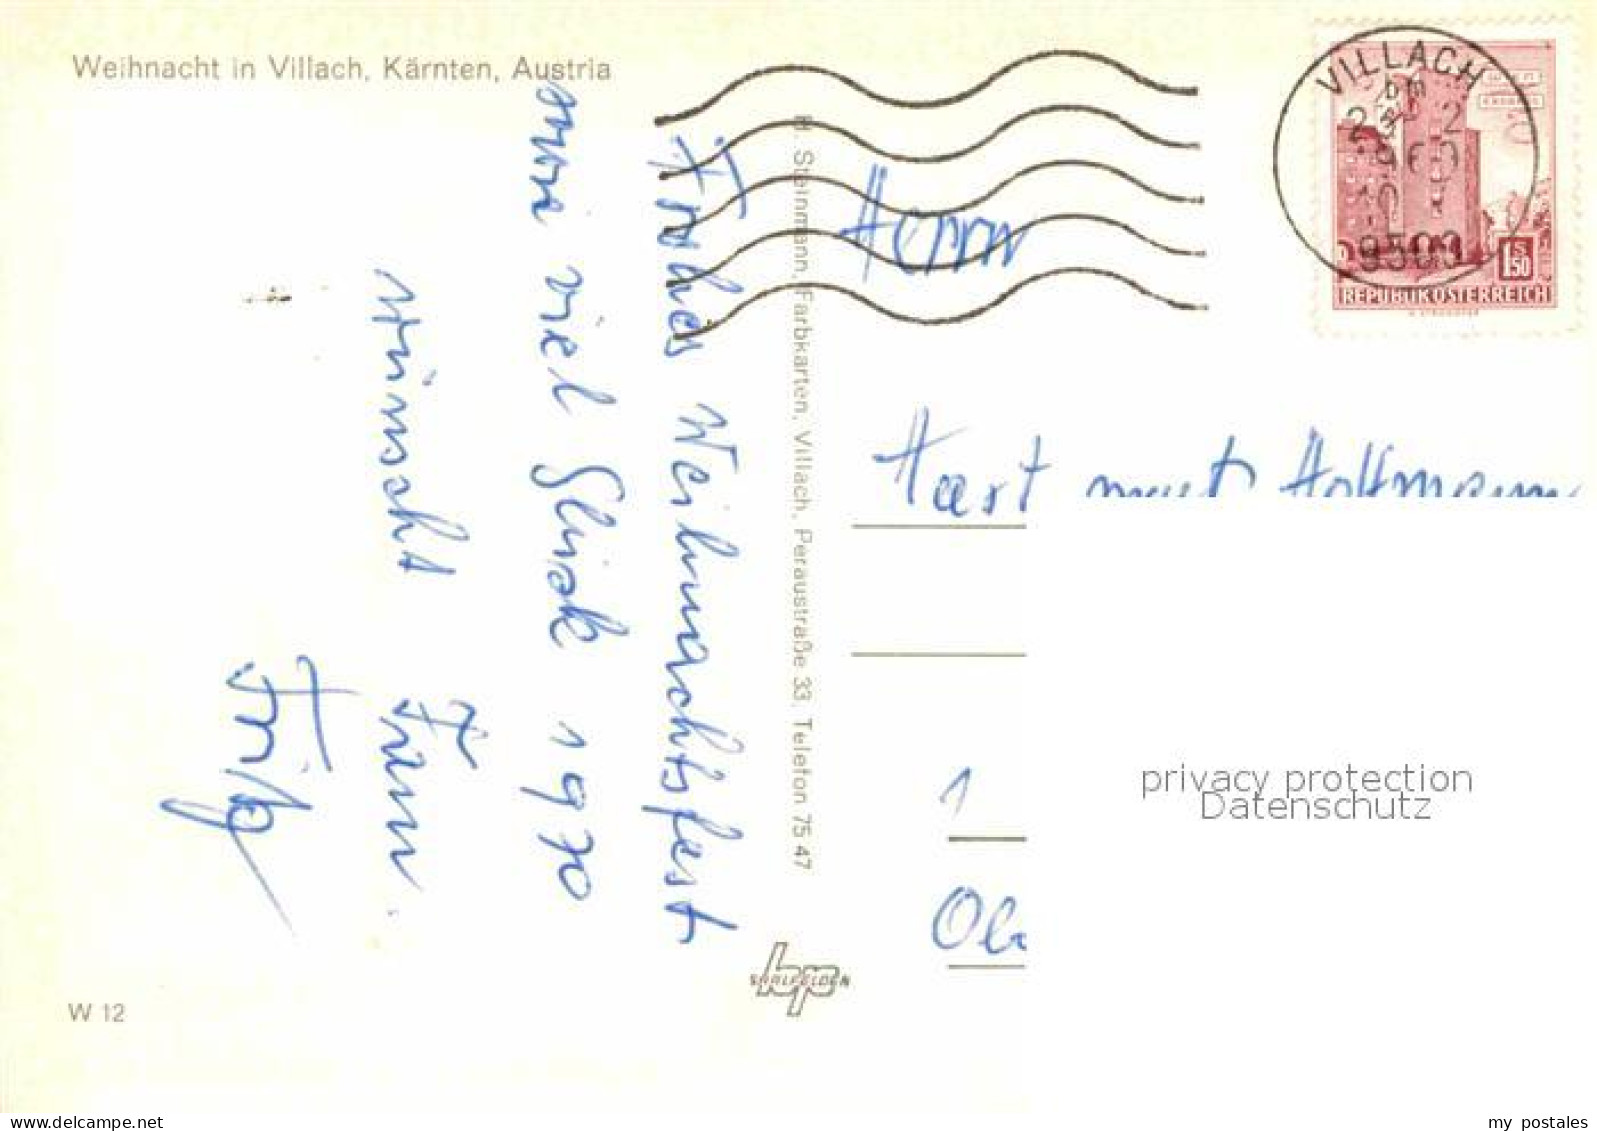 Weihnacht in Villach, Kärnten, Austria
Frohes Weihnachtsfest
und viel Glück 1970
wünscht Fam.
Fritz
H. Steinmann, Farbkarten, Villach, Peraustraße 33, Telefon 75 47
VILLACH
9500
1 S 50
REPUBLIK ÖSTERREICH
Herrn
Hartmut Hoffmann
1
Ob
privacy protection
Datenschutz
SAALFELDEN
W 12
delcampe.net
my postales